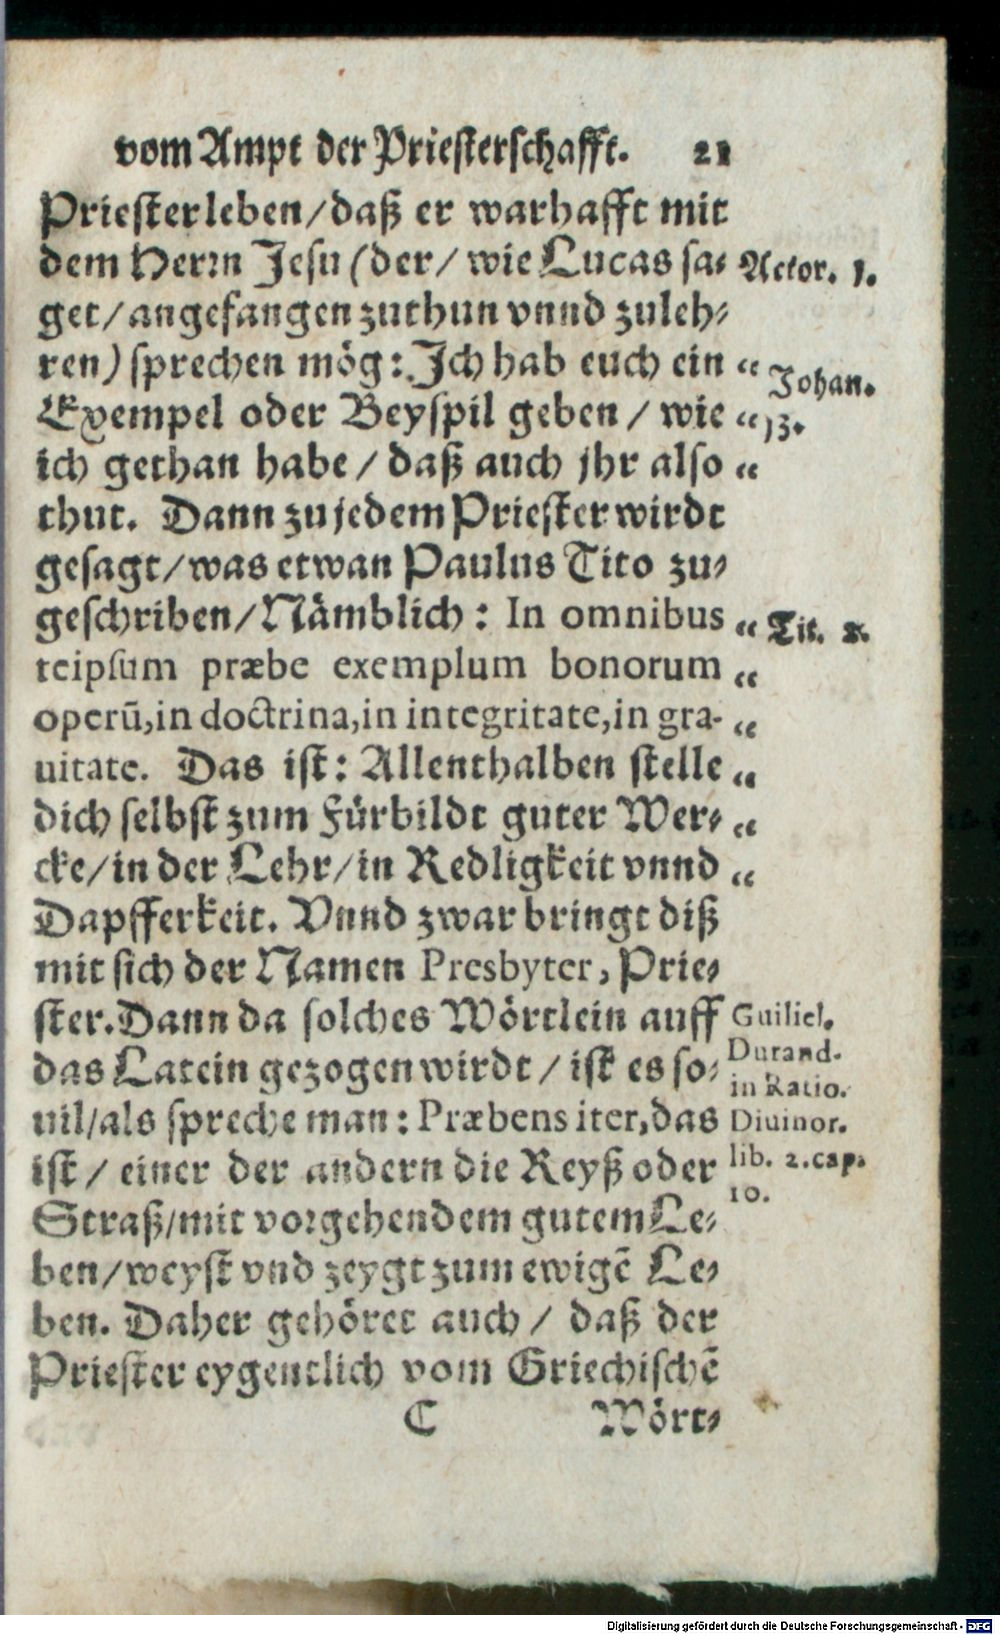 vom Ampt der Priesterschafft. 21
Priesterleben/daß er warhafft mit
dem Herrn Jesu (der/ wie Lucas sa⸗ Actor. 1.
get/angefangen zuthun vnnd zuleh⸗
ren) sprechen mög: Ich hab euch ein “ Johan.
Exempel oder Beyspil geben / wie “ 13.
ich gethan habe / daß auch jhr also “
thut. Dann zu jedem Priester wirdt
gesagt/was etwan Paulus Tito zu⸗
geschriben/Nämblich: In omnibus “ Tit. 2.
teipsum præbe exemplum bonorum “
operū,in doctrina,in integritate,in gra- “
uitate. Das ist: Allenthalben stelle “
dich selbst zum Fürbildt guter Wer⸗ “
cke/in der Lehr/in Redligkeit vnnd “
Dapfferkeit. Vnnd zwar bringt diß
mit sich der Namen Presbyter, Prie⸗
ster. Dann da solches Wörtlein auff Guiliel.
das Latein gezogen wirdt / ist es so⸗ Durand.
in Ratio.
uil/als spreche man: Præbens iter,das Diuinor.
ist / einer der andern die Reyß oder lib. 2.cap.
10.
Straß/mit vorgehendem gutem Le⸗
ben/weyst vnd zeygt zum ewigē Le⸗
ben. Daher gehöret auch / daß der
Priester eygentlich vom Griechischē
C Wört⸗
Digitalisierung gefördert durch die Deutsche Forschungsgemeinschaft - DFG